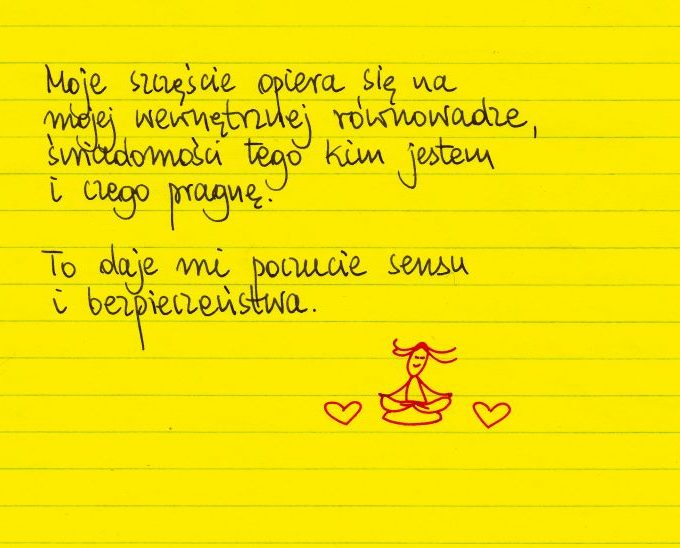 Moje szczęście opiera się na
mojej wewnętrznej równowadze,
świadomości tego kim jestem
i czego pragnę.
To daje mi poczucie sensu
i bezpieczeństwa.